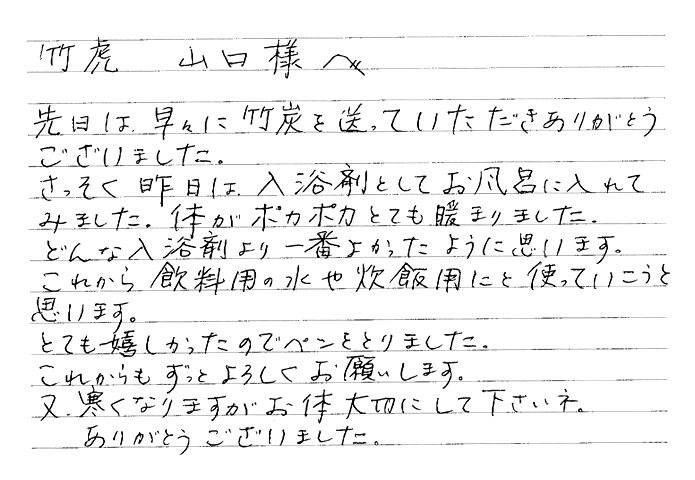 竹虎 山口様へ
先日は、早々に竹炭を送っていただきありがとう
ございました。
さっそく昨日は、入浴剤としてお風呂に入れて
みました。体がポカポカとても暖まりました。
どんな入浴剤より一番よかったように思います。
これから飲料用の水や炊飯用にと使っていこうと
思います。
とても嬉しかったのでペンをとりました。
これからもずっとよろしくお願いします。
又、寒くなりますがお体大切にして下さいネ。
ありがとうございました。